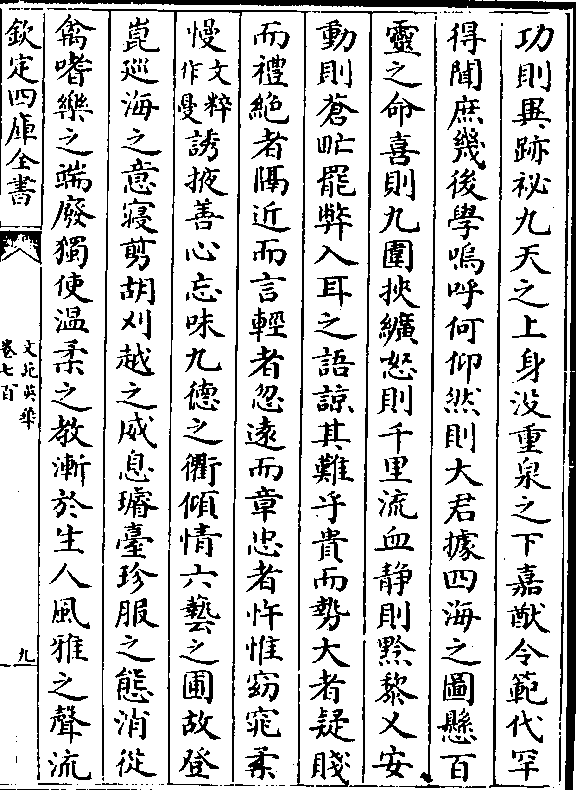 功則異跡祕九天之上身没重泉之下嘉猷令範代罕
得聞庶幾後學嗚呼何仰然則大君據四海之圖懸百
靈之命喜則九圍挾纊怒則千里流血静則黔黎乂安
動則蒼甿罷弊入耳之語諒其難乎貴而勢大者疑賤
而禮絶者隔近而言輕者忽逺而章忠者忤惟窈窕柔
慢文粹作曼誘掖善心忘味九德之衢傾情六藝之圃故登
崑廵海之意寢剪胡刈越之威息璿臺珍服之態消從
禽嗜樂之端廢獨使温柔之教漸於生人風雅之聲流
欽定四庫全書
文苑英華
卷七百
九